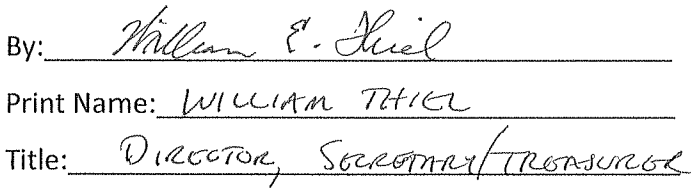 By: William E. Thiel
Print Name: WILLIAM THIEL
Title: DIRECTOR, SECRETARY/TREASURER